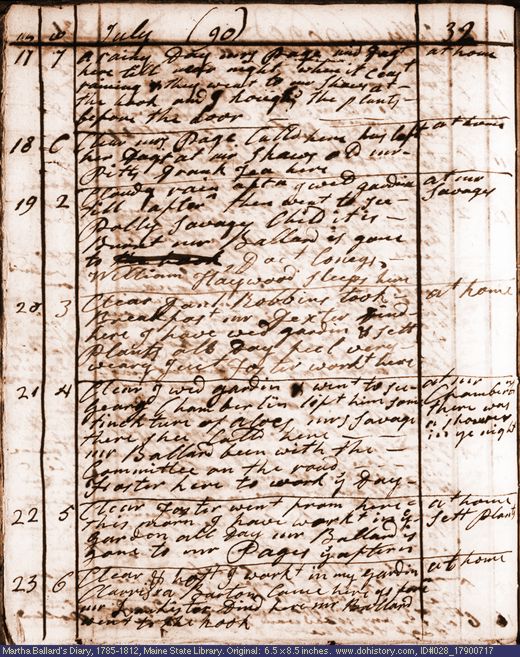 July (90) 39
17 7 a rainy Day mrs Page and
here till near night when it
raining they went to mr Shaws at at home
the hook and I houghd the plants
before the Door
18 C Clear mrs Page Calld here has left at home
her at mr Shaws old mrs
Pitts Drank Tea here
19 2 Cloudy rain I weed gardin at mr
till after then went to see Savages
Polly Savages Child it is
Burnt mr Ballard is gone
to Doct Conys
William Haywood sleeps here
20 3 Clear Robbins took at home
Breakfast mr Dexter
here I have weed gardin & sett
Plants all Day feel very
weary Foster workt here
21 4 Clear I wed gardin & went to see at mr
George Chamberlin left him some Chamberlins
tincture of aloes mrs Savage there was
there shee Calld here a shower
mr Ballard been with the in ye night
Committee on the road
Foster here to work ys Day
22 5 Clear Foster went from here at home
this morn I have workt in ye Sett Plants
gardin all Day mr Ballard is
gone to mr Pages ys aftern
23 6 Clear & hott I workt in my gardin at home
Clarrissa Barton came here
mr Dind here mr Ballard
went to the hook
Martha Ballard's Diary, 1785-1812, Maine State Library. Original: 6.5 x 8.5 inches. www.dohistory.com, ID#028_17900717